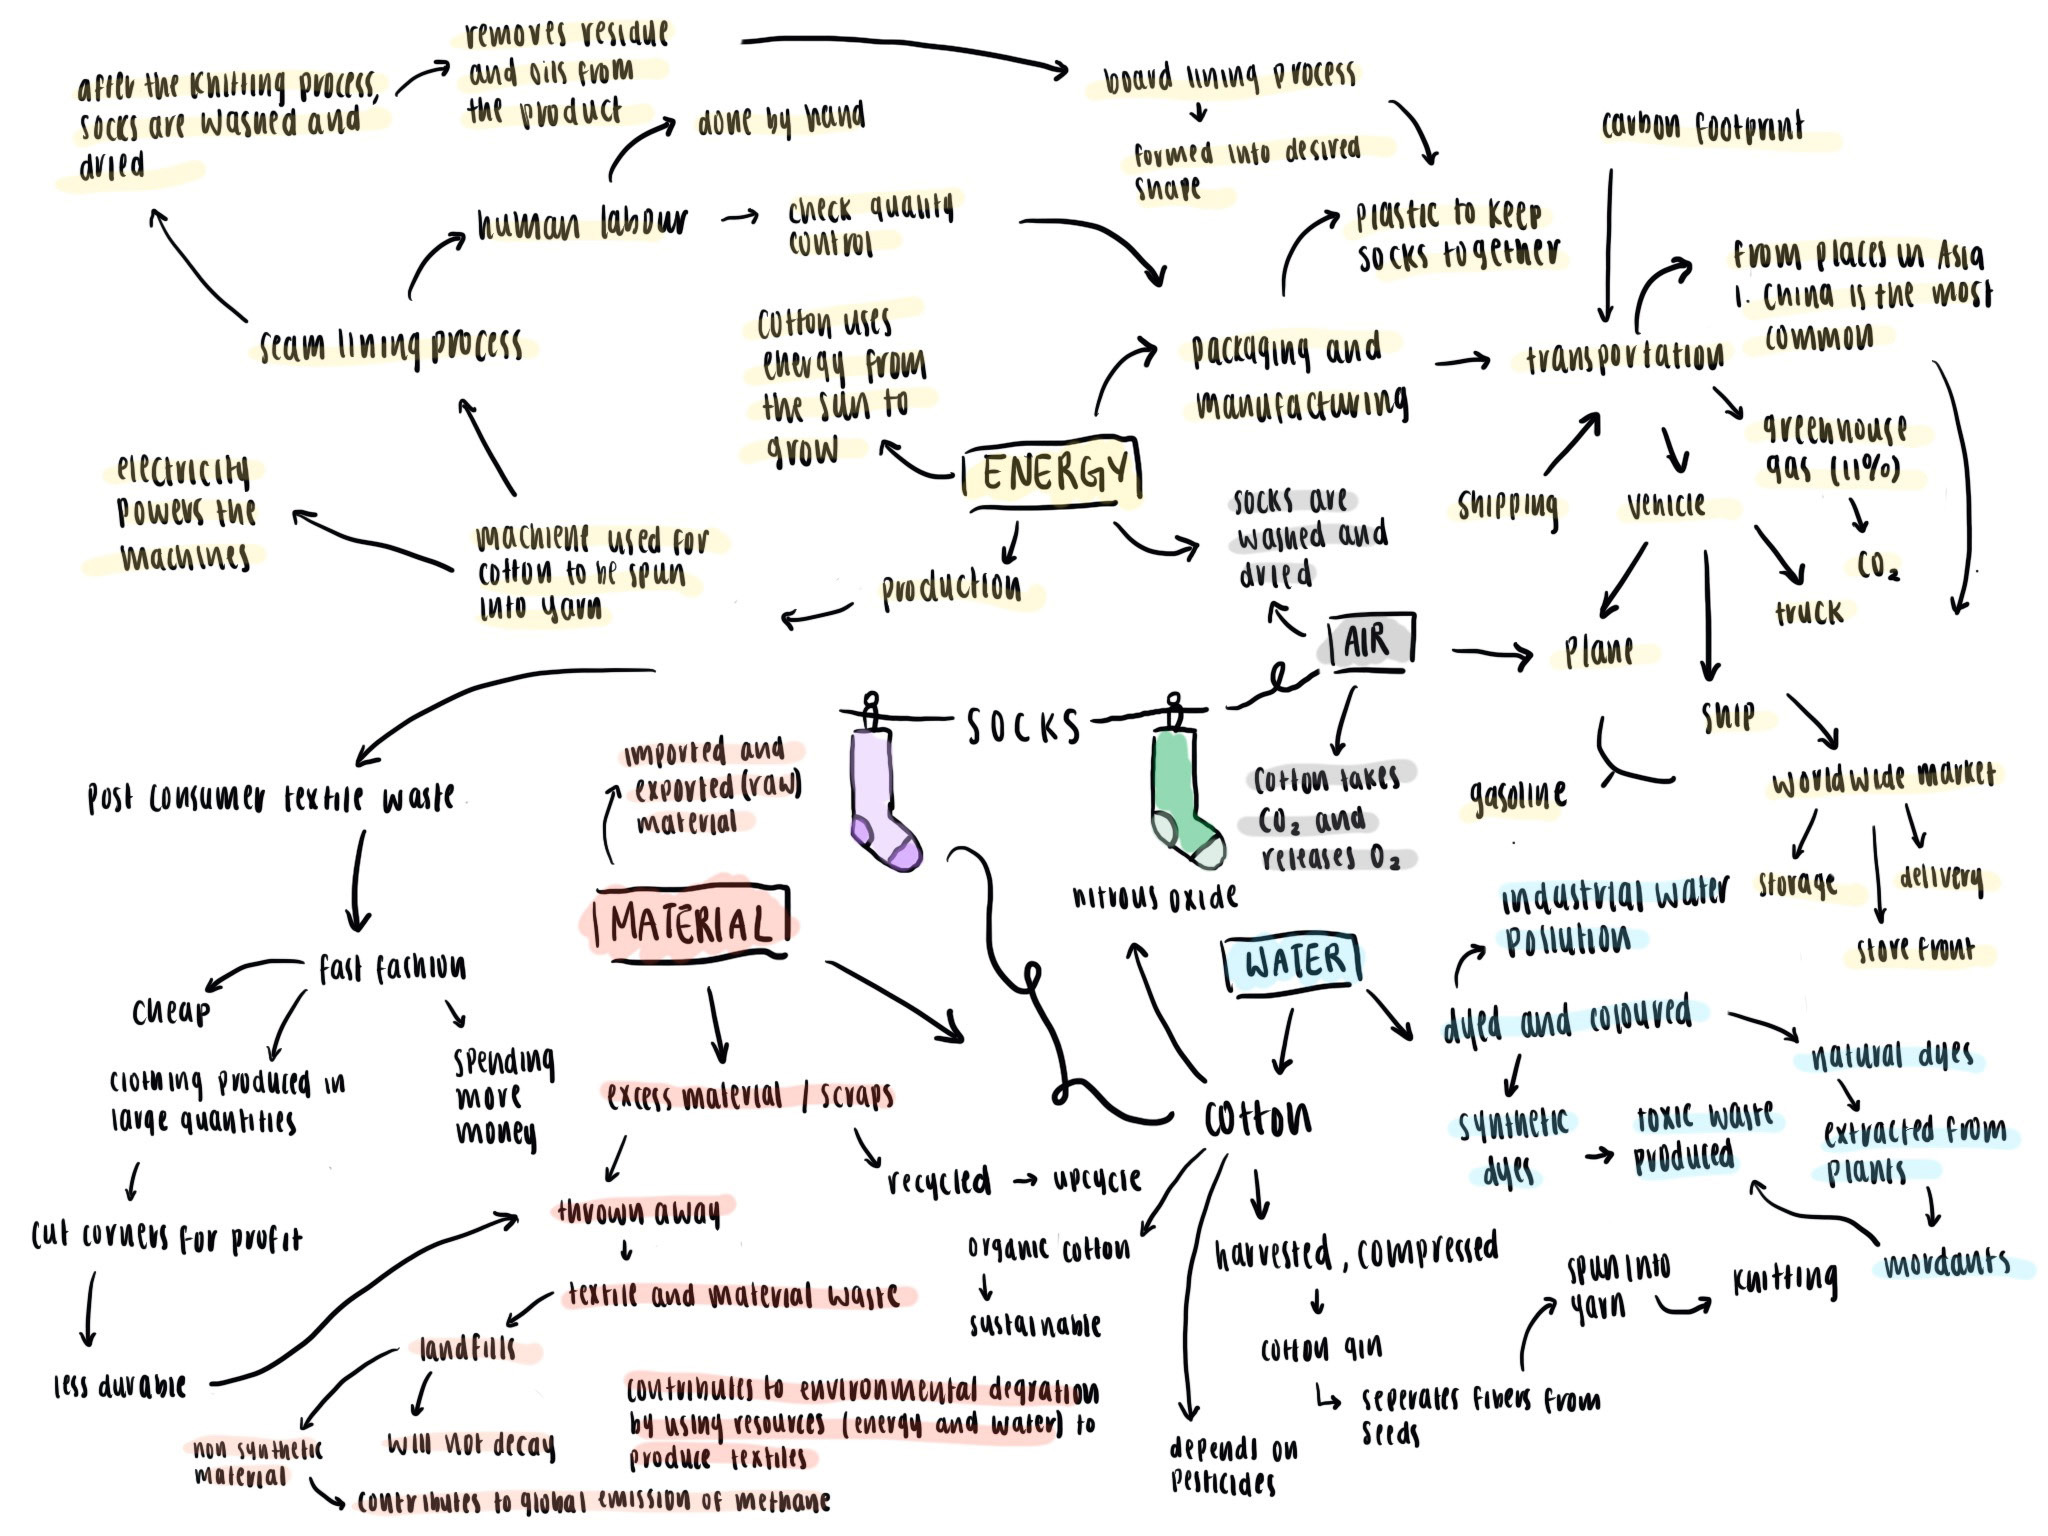 removes residue
and oils from
the product
after the Knitting process,
socks are washed and
dried
board lining process
formed into desired
shape
done by hand
carbon footprint
human labour
check quality
control
plastic to keep
socks together
from places in Asia
1. China is the most
common
seam lining process
cotton uses
energy from
the sun to
grow
packaging and
manufacturing
transportation
greenhouse
gas (11%)
CO₂
electricity
powers the
machines
machiene used for
cotton to be spun
into yarn
ENERGY
production
socks are
washed and
dried
shipping
vehicle
truck
AIR
plane
ship
SOCKS
gasoline
worldwide market
storage
delivery
store front
post consumer textile waste
imported and
exported (raw)
material
cotton takes
CO₂ and
releases O₂
nitrous oxide
MATERIAL
WATER
industrial water
pollution
fast fachion
cheap
clothing produced in
large quantities
spending
more
money
dyed and coloured
natural dyes
excess material / scraps
cotton
synthetic
dyes
toxic waste
produced
extracted from
plants
recycled → upcycle
thrown away
cut corners for profit
organic cotton
sustainable
harvested, compressed
spun into
yarn
knitting
mordants
textile and material waste
landfills
cotton gin
less durable
seperates fibers from
seeds
contributes to environmental degration
by using resources (energy and water) to
produce textiles
non synthetic
material
will not decay
depends on
pesticides
contributes to global emission of methane